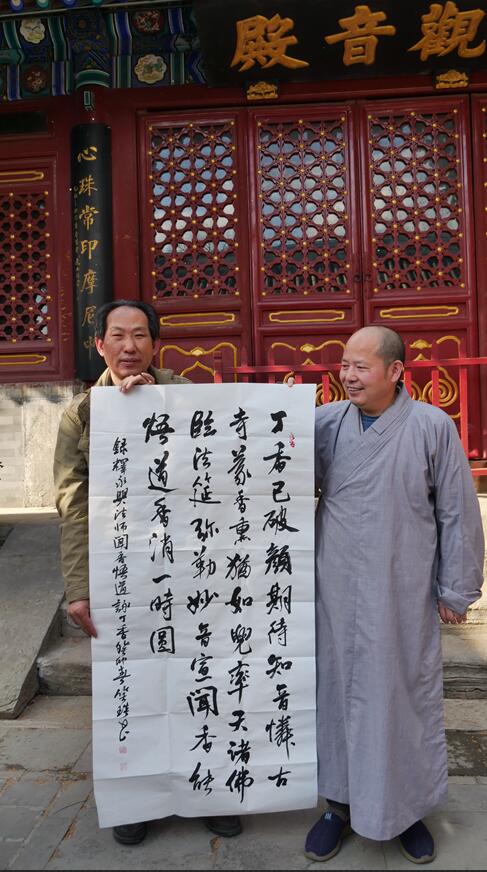 觀音殿
心珠常印摩尼
丁香已破顏期待知音憐古
寺蒙香熏猶如兜率天諸佛
臨法筵弥勒妙音宣聞香能
悟道香消一時圓
錄釋永興法師聞香悟道詠丁香